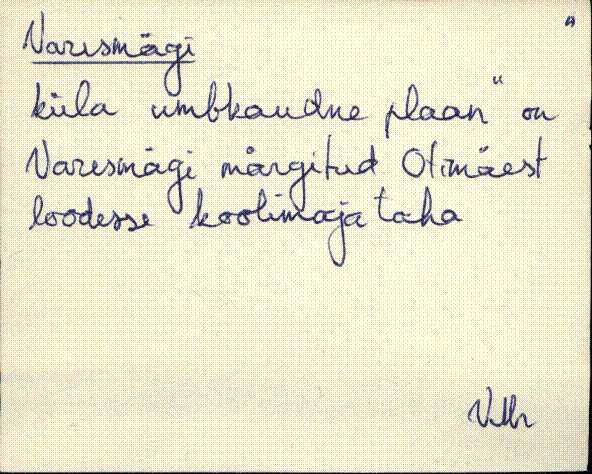 Varesmägi
küla umbkaudne plaan" on
Varesmägi märgitud Otimäest
loodesse koolimaja taha